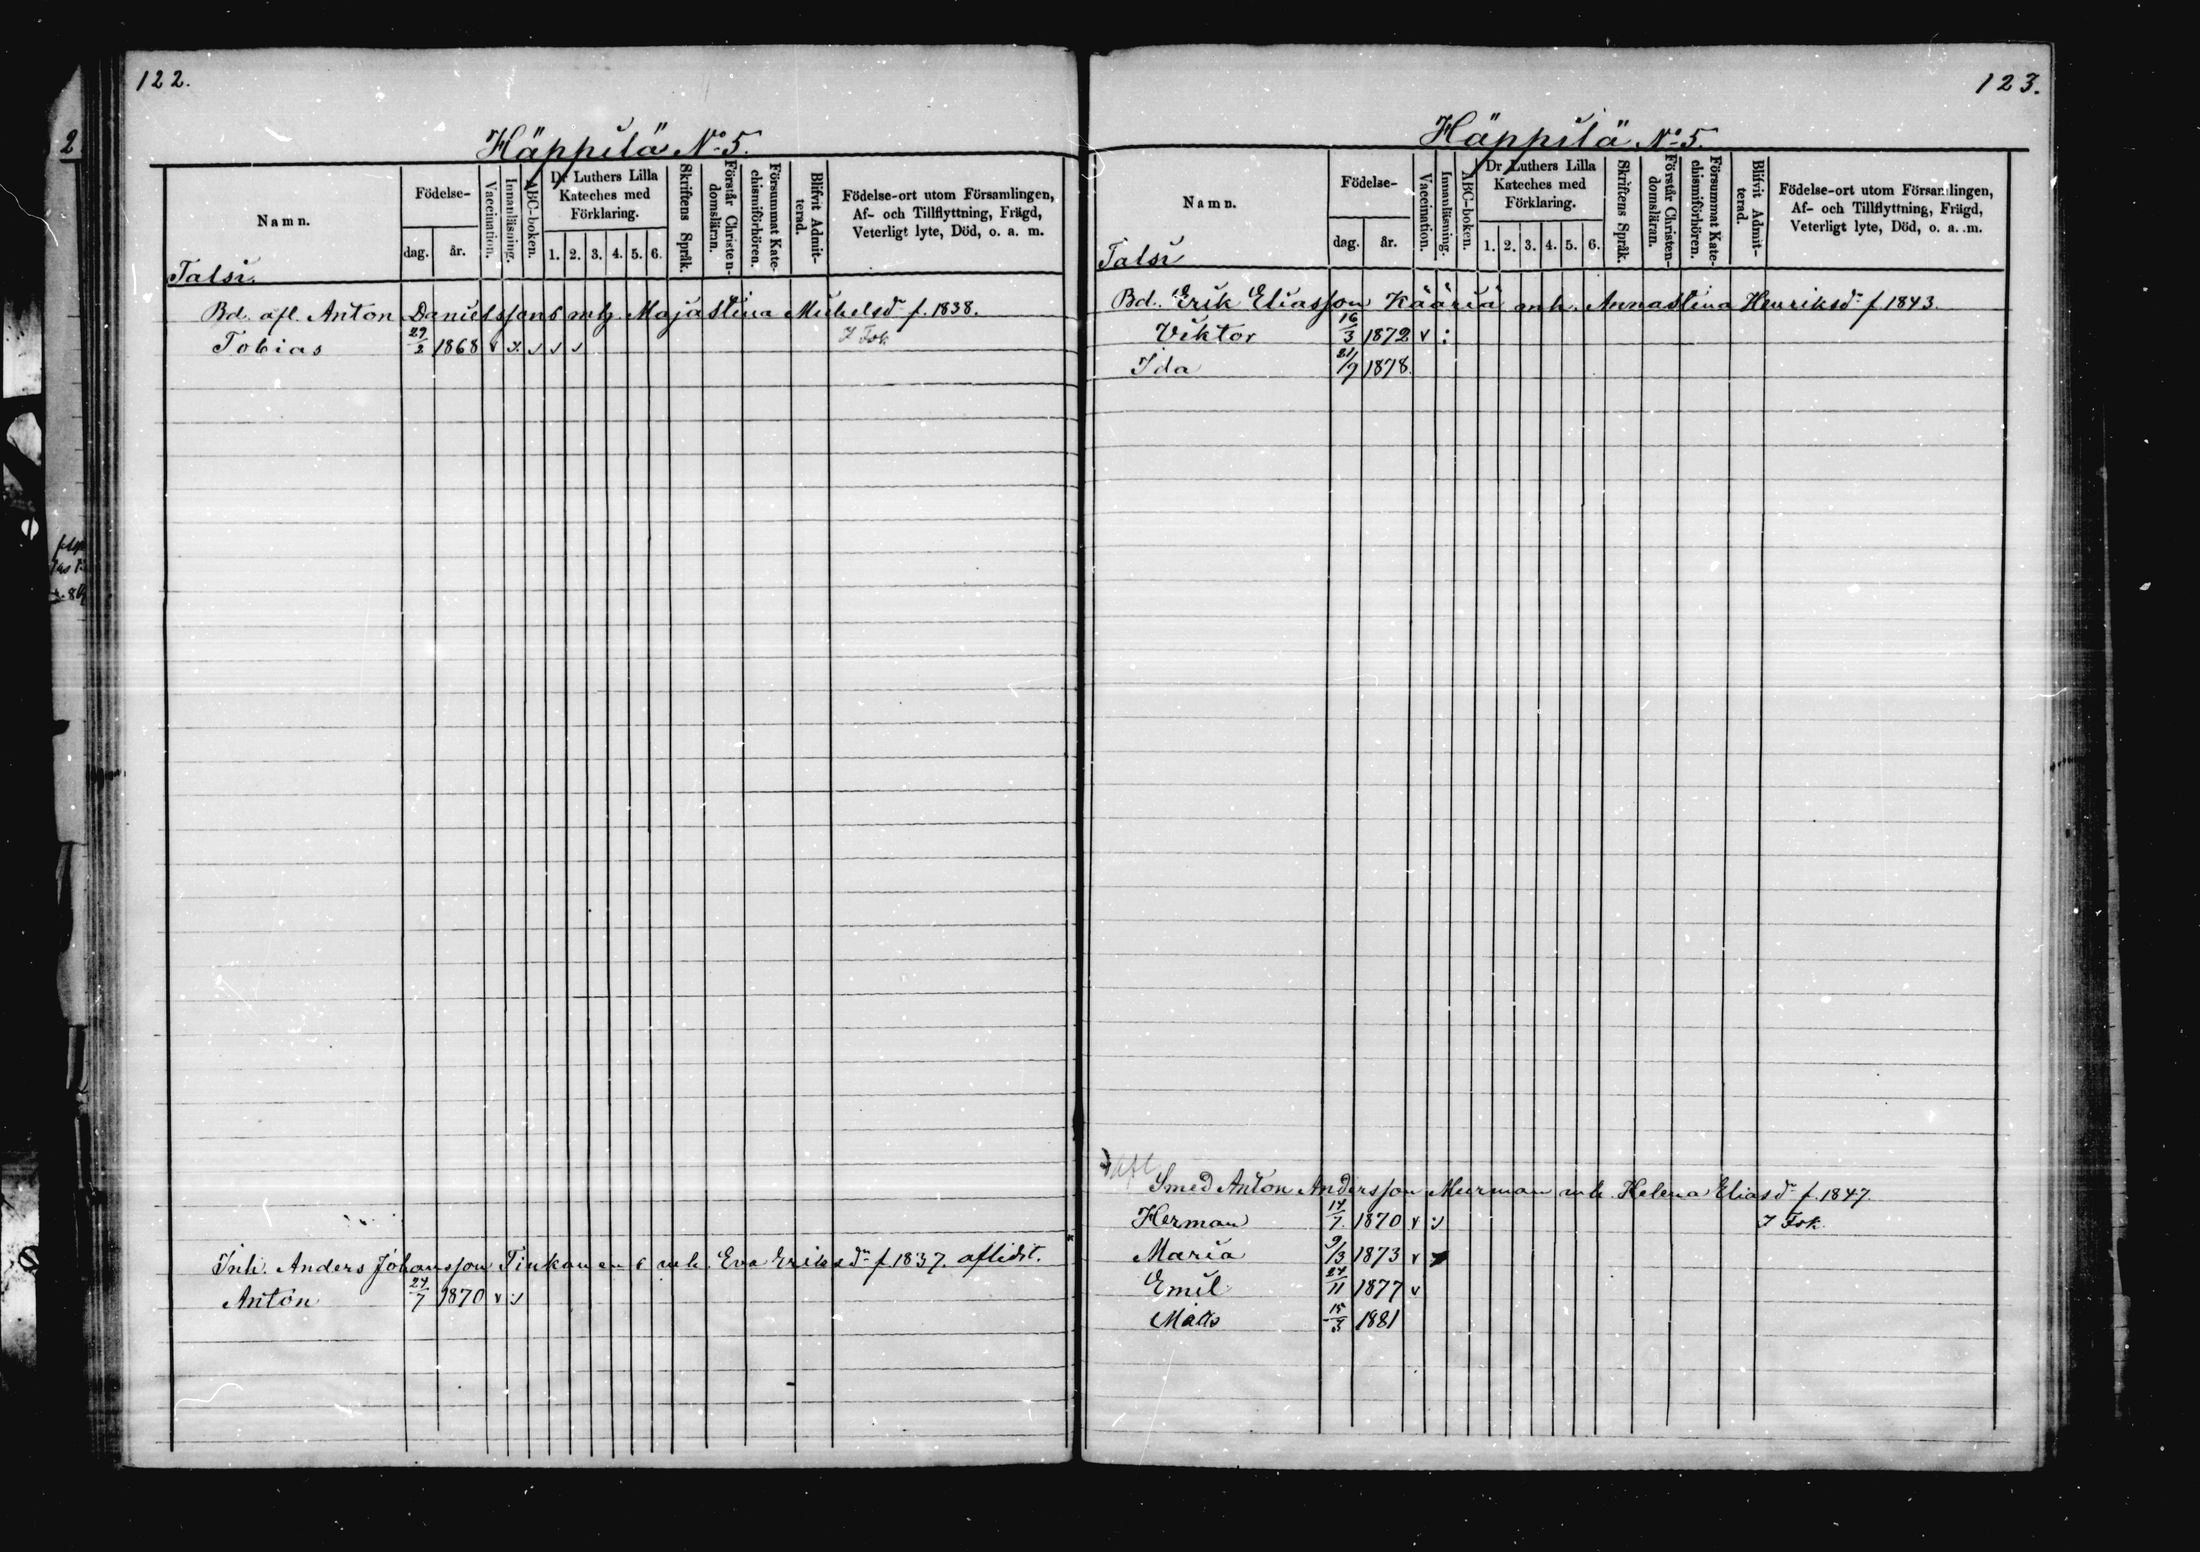 122.
Häppilä No 5.
Namn.
Födelse-
dag. år.
Vaccination.
Innanläsning.
ABC-boken.
Dr Luthers Lilla Kateches med Förklaring.
1. 2. 3. 4. 5. 6.
Skriftens Språk.
Förstår Christendomsläran.
Försummat Katechismiförhören.
Blifvit Admitterad.
Födelse-ort utom Församlingen,
Af- och Tillflyttning, Frägd,
Veterligt lyte, Död, o. a. m.
Talsi.
Bd. afl. Anton Danielssons mh. Majastina Michelsdr f. 1838.
Tobias 29/2 1868 v x v v v I Fsk
Inh. Anders Johansson Tinkanens mh. Eva Eriksdr f. 1837. aflidit.
Anton 24/7 1870 v :/
123.
Häppilä No 5.
Namn.
Födelse-
dag. år.
Vaccination.
Innanläsning.
ABC-boken.
Dr Luthers Lilla Kateches med Förklaring.
1. 2. 3. 4. 5. 6.
Skriftens Språk.
Förstår Christendomsläran.
Försummat Katechismiförhören.
Blifvit Admitterad.
Födelse-ort utom Församlingen,
Af- och Tillflyttning, Frägd,
Veterligt lyte, Död, o. a. m.
Talsi
Bd. Erik Eliasson Kääriä mh. Annastina Henriksdr f. 1843.
Viktor 16/3 1872 v :
Ida 21/9 1878.
afl
Smed Anton Andersson Murman mh. Helena Eliasdr f. 1847.
Herman 14/7 1870 v :/ I Fsk.
Maria 9/3 1873 v
Emil 24/11 1877 v
Matts 15/3 1881